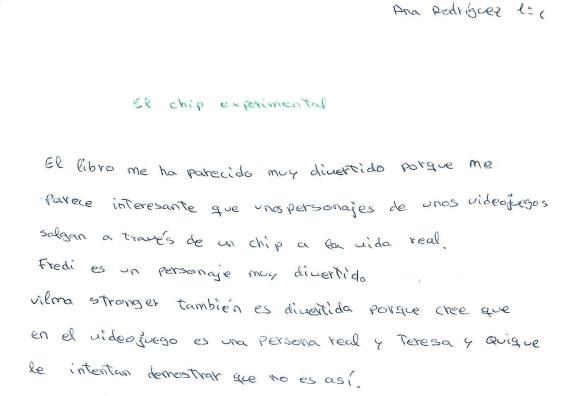 Ana Rodríguez 1º C
El chip experimental
El libro me ha parecido muy divertido porque me
parece interesante que unos personajes de unos videojuegos
salgan a través de un chip a la vida real.
Fredi es un personaje muy divertido
Vilma stronger también es divertida porque cree que
en el videojuego es una persona real y Teresa y Quique
le intentan demostrar que no es así.